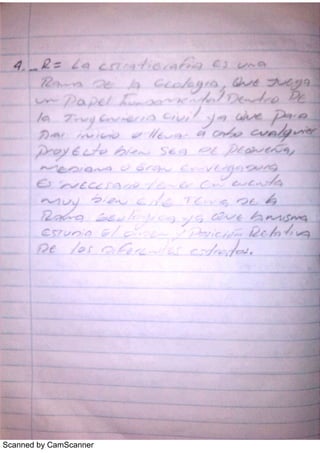 4._ R= La estratigrafia es una
Rama de la Geologia, Que Juega
un Papel Fundamental Dentro De
la Ingenieria Civil ya Que Para
Dar inicio o llevar a cabo cualquier
proyecto bien sea de Pequeña,
mediana o Gran envergadura
es necesario tener en cuenta
muy bien este Tema de la
Rama Geologica ya Que la misma
estudia el origen y Posición Relativa
De los diferentes estratos.
Scanned by CamScanner